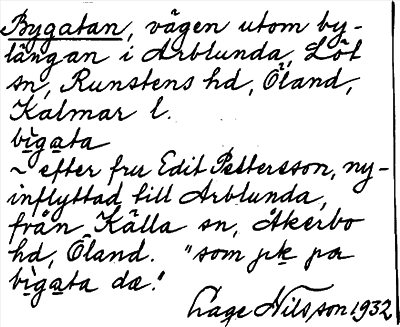 Bygatan, vägen utom by-
längan i Arblunda, Löt
sn, Runstens hd, Öland,
Kalmar l.
bìgata
~ efter fru Edit Pettersson, ny-
inflyttad till Arblunda,
från Källa sn, Åkerbo
hd, Öland. "som jik pa
bìgata dæ."
Lage Nilsson 1932